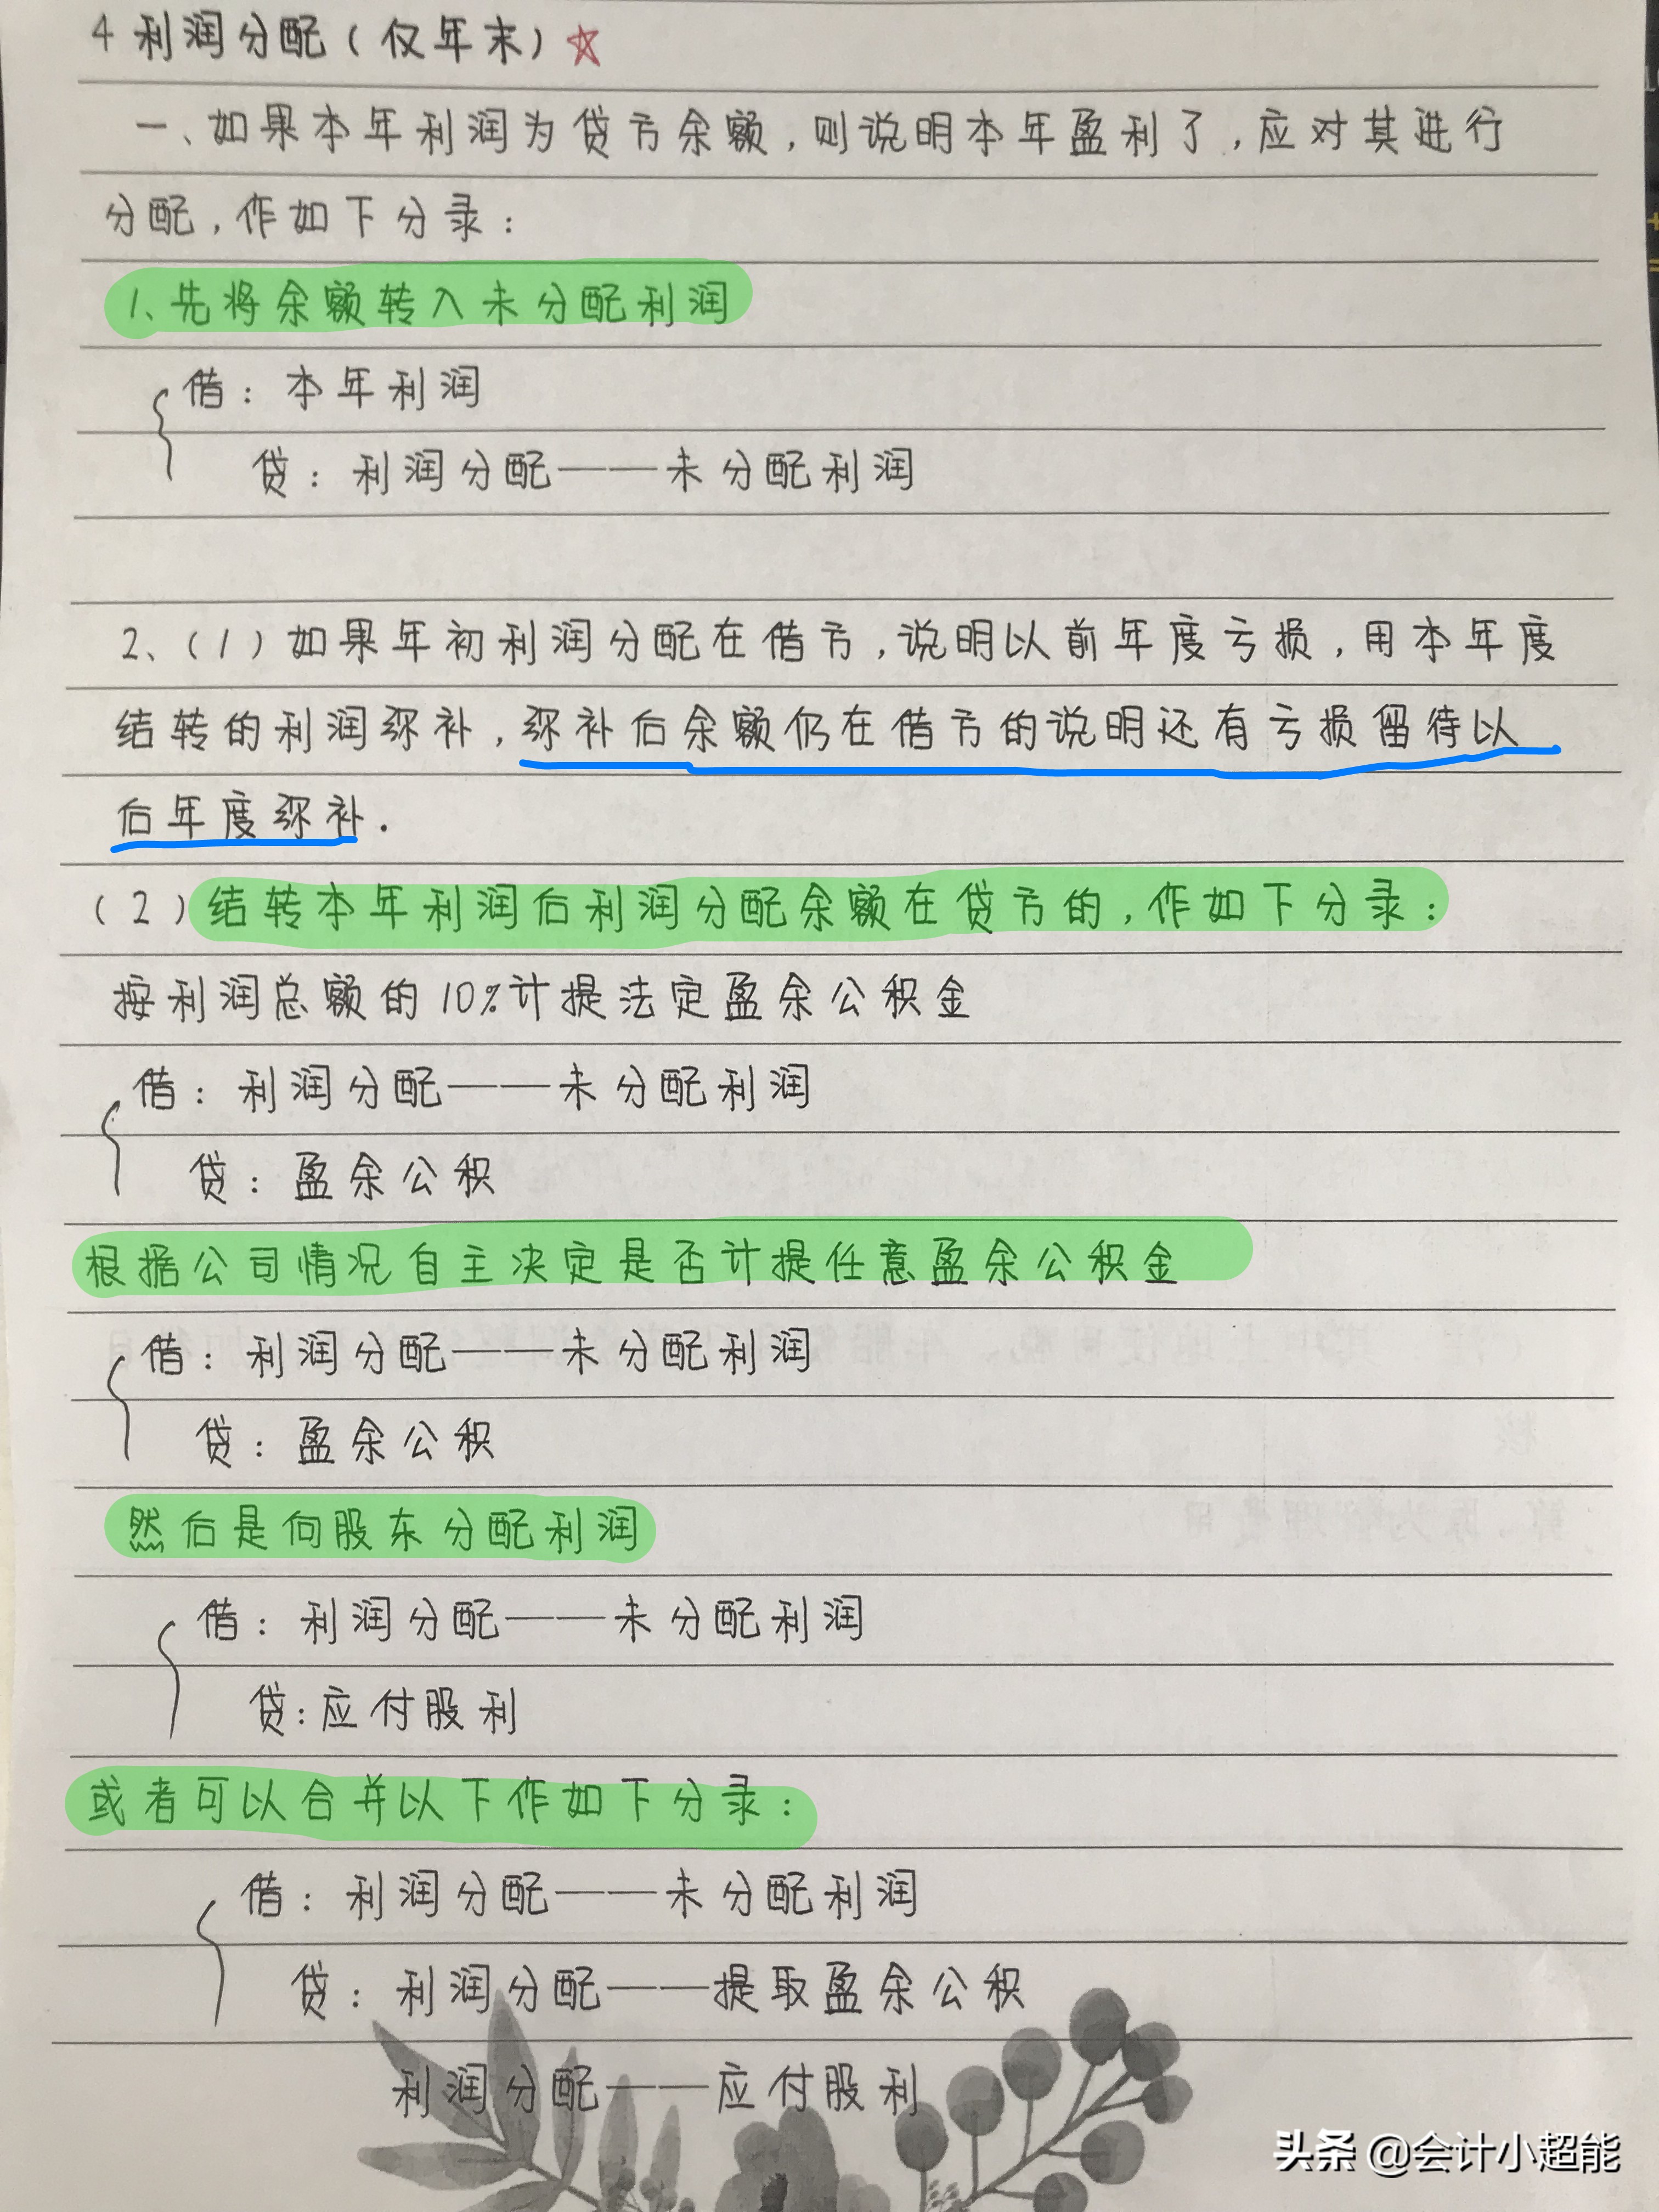 4 利润分配(仅年末)☆
一、如果本年利润为贷方余额,则说明本年盈利了,应对其进行
分配,作如下分录:
1、先将余额转入未分配利润
借:本年利润
贷:利润分配——未分配利润
2、(1)如果年初利润分配在借方,说明以前年度亏损,用本年度
结转的利润弥补,弥补后余额仍在借方的说明还有亏损留待以
后年度弥补.
(2)结转本年利润后利润分配余额在贷方的,作如下分录:
按利润总额的10%计提法定盈余公积金
借:利润分配——未分配利润
贷:盈余公积
根据公司情况自主决定是否计提任意盈余公积金
借:利润分配——未分配利润
贷:盈余公积
然后是向股东分配利润
借:利润分配——未分配利润
贷:应付股利
或者可以合并以下作如下分录:
借:利润分配——未分配利润
贷:利润分配——提取盈余公积
利润分配——应付股利
头条 @会计小超能